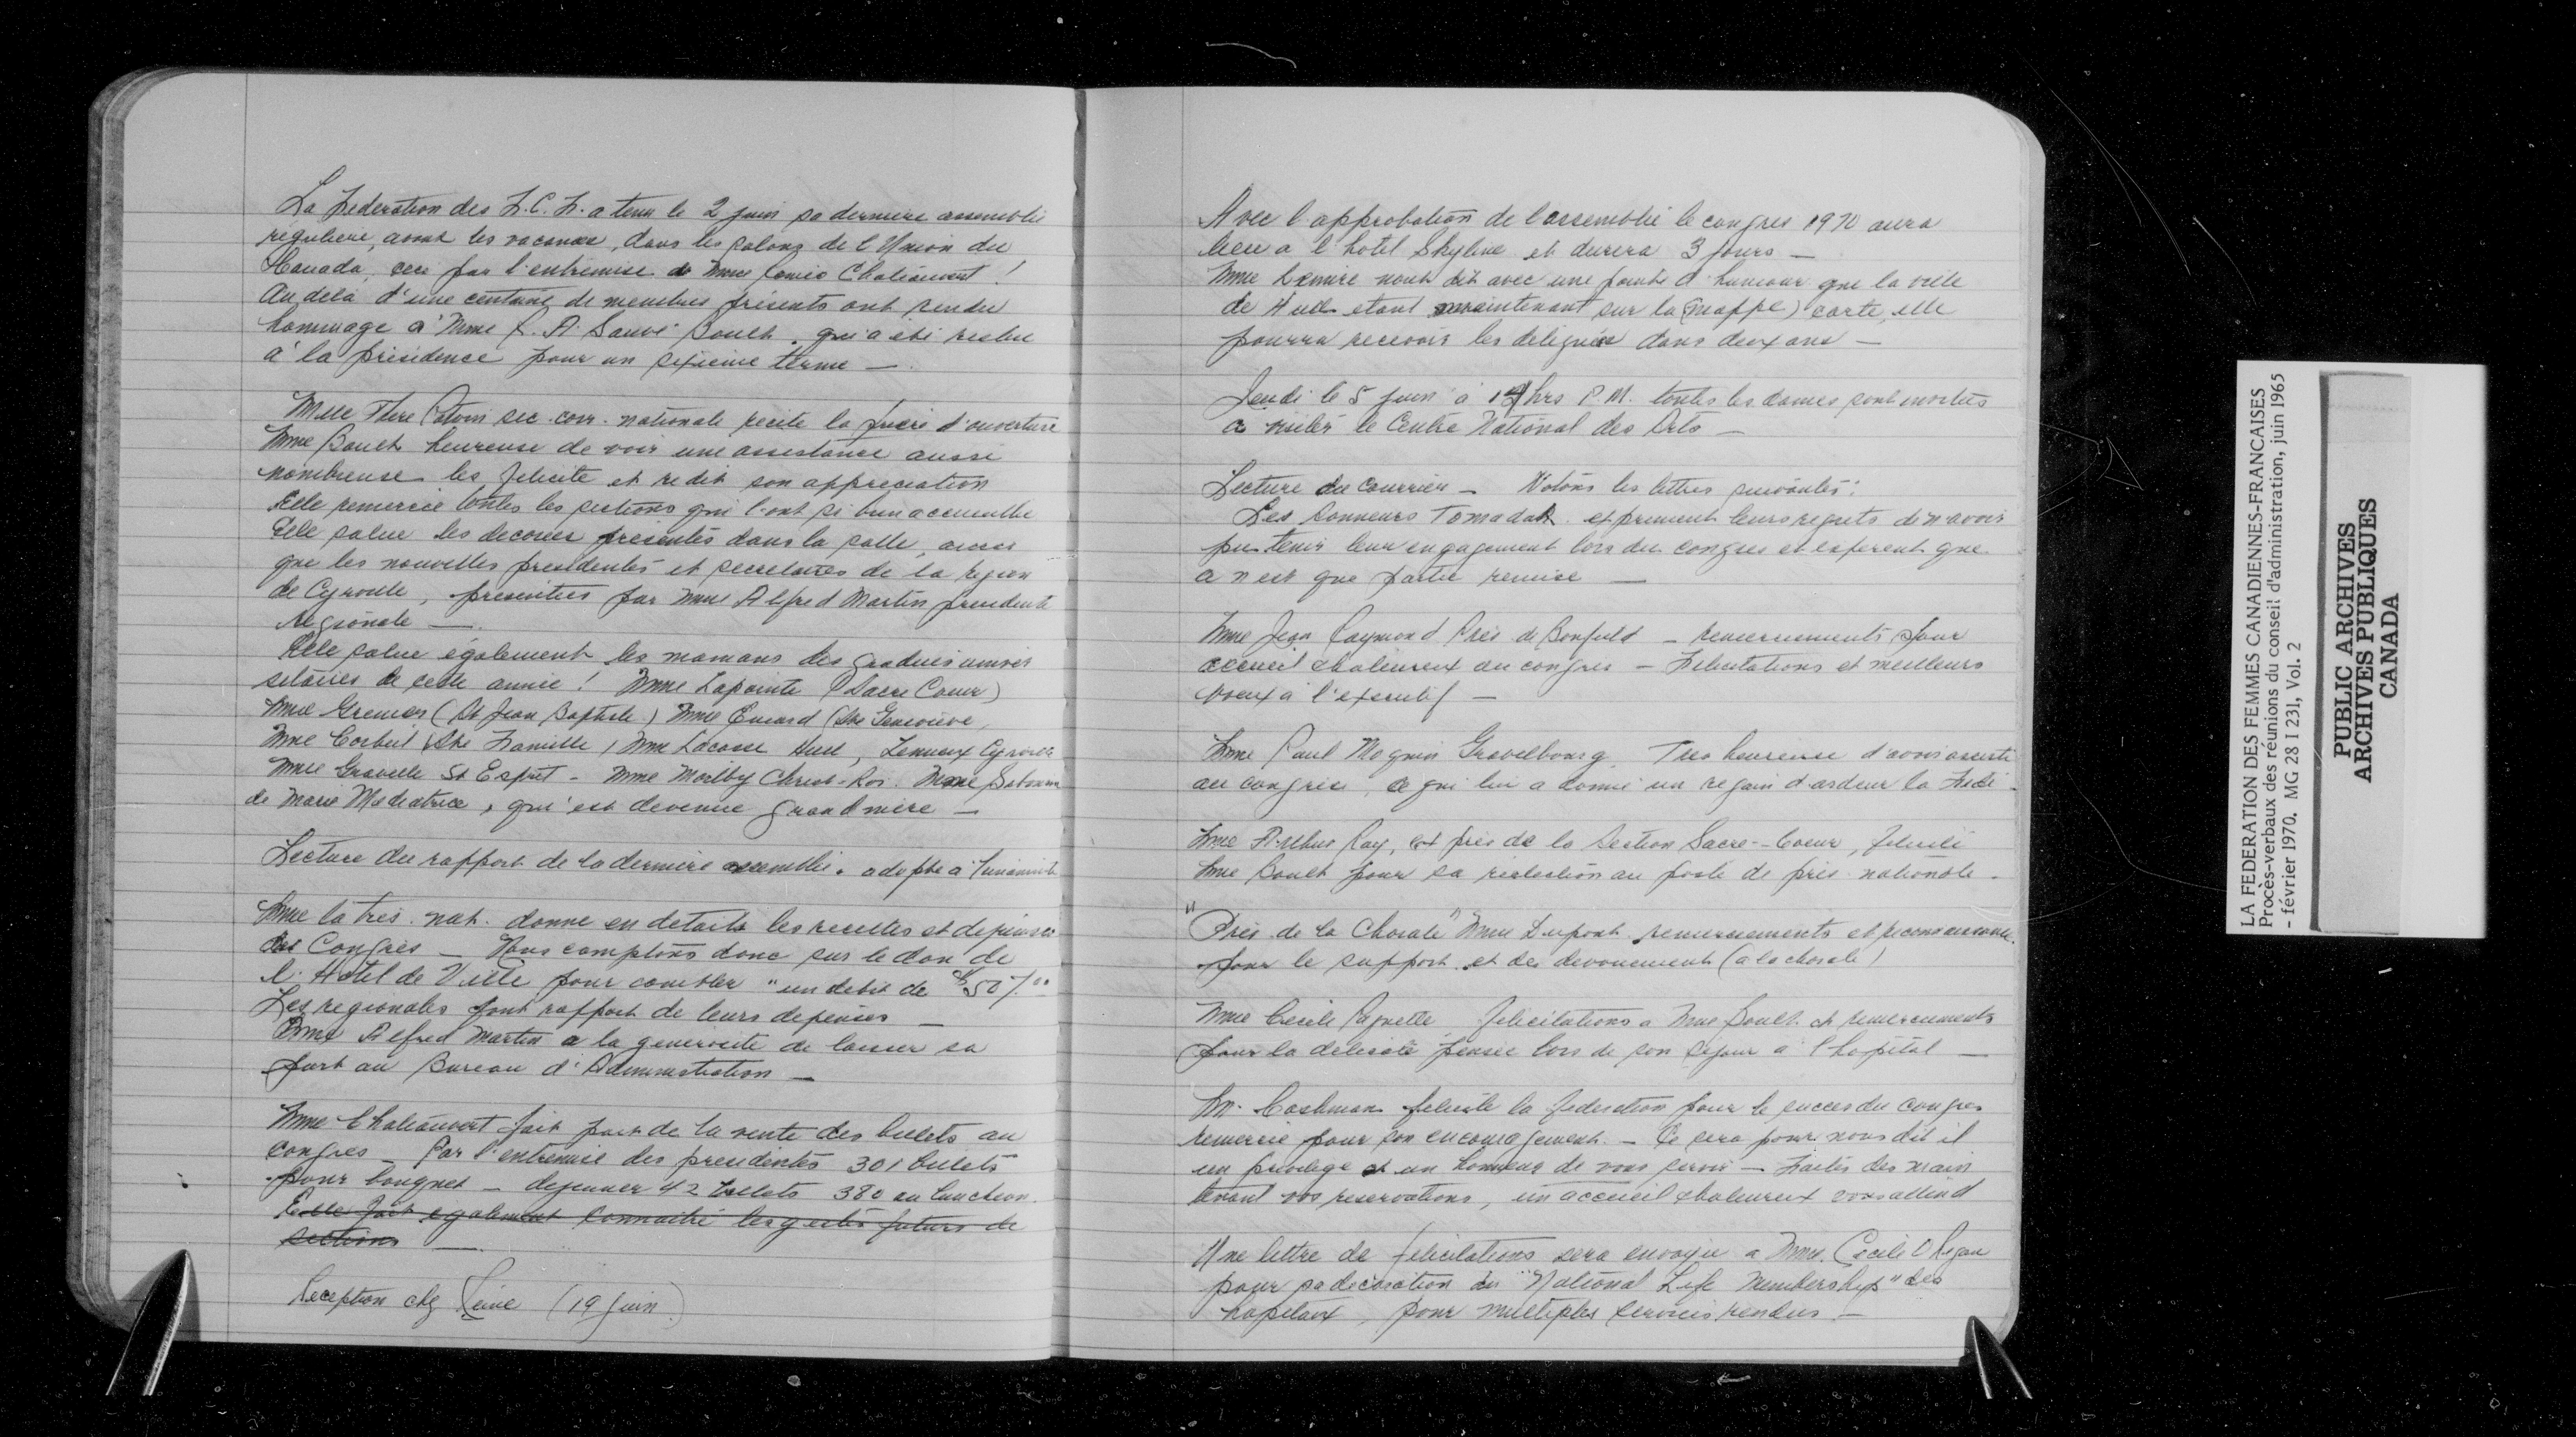 La Federation des F.C.F. a tenu le 2 juin sa derniere assemblée
reguliere, avant les vacances, dans les salons de l'Union du
Canada, ceci par l'entremise de Mme Chateauvert !
Au dela d'une centaine de membres présents ont rendu
hommage à Mme R. A. Sauvé Boult. qui a été reelue
à la présidence pour un sixieme terme —.
Melle sec. corr. nationale recite la prière d'ouverture
Mme Boult heureuse de voir une assistance aussi
nombreuse les felicite et redit son appreciation
Elle remercie toutes les sections qui l'ont si bien accueillie
Elle salue les presentes dans la salle, ainsi
que les nouvelles presidentes et secretaires de la region
de Cyrville, presentées par Mme Alfred Martin presidente
regionale —.
Elle salue également les mamans des gradués univer
sitaires de cette année ! Mme Lapointe (Sacre Coeur)
Mme Grenier (St Jean Baptiste) Mme (Ste Genevieve,
Mme Corbeil (Ste Famille) Mme Lacasse Hull, Lemieux Cyrville
Mme Gravelle St Esprit - Mme Christ-Roi. Mme
de Marie Mediatrice, qui est devenue grand mère —
Lecture du rapport de la derniere assemblée. adopte a l'unanimité
Mme la tres. nat. donne en details les recettes et depenses
du Congres — Nous comptons donc sur le don de
l'Hotel de Ville pour combler "un debit de $507.00
Les regionales font rapport de leurs depenses —
Mme Alfred Martin a la generosité de laisser sa
part au Bureau d'Administration —
Mme Chateauvert fait part de la vente des billets au
congres — Par l'entremise des presidentes 301 billets
pour banquet — dejeuner 42 billets 380 au luncheon.
Elle fait egalement connaitre les gestes futurs de
sections —.
Reception chez Reine (19 juin)
Avec l'approbation de l'assemblée le congres 1970 aura
lieu a l'hotel Skyline et durera 3 jours —
Mme nous dit avec une pointe d'humour que la ville
de Hull etant maintenant sur la (mappe) carte, elle
pourra recevoir les deleguées dans deux ans —
Jeudi le 5 juin à hrs P.M. toutes les dames sont invitées
a visiter le Centre National des Arts —
Lecture du Courrier — Notons les lettres suivantes:
Les Sonneurs expriment leurs regrets de n'avoir
pu tenir leur engagement lors du congres et esperent que
ce n'est que partie remise —
Mme Jean Raymond Pres de Bonfield — remerciements pour
accueil chaleureux au congres — Felicitations et meilleurs
voeux à l'executif —
Mme Paul Moquin Gravelbourg. Tres heureuse d'avoir assisté
au congrès, ce qui lui a donné un regain d'ardeur la Fédé.
Mme Arthur Ray, ex pres de la Section Sacre-Coeur, felicite
Mme Boult pour sa réélection au poste de près. nationale.
"Près de la Chorale" Mme Dupont remerciements et reconnaissance
pour le support et des devouement (a la chorale)
Mme Cecile Paquette felicitations a Mme Boult et remerciements
pour la delicate pensee lors de son sejour a l'hopital —
Mr. Cashman felicite la federation pour le succes du congres
remercie pour son encouragement. — Ce sera pour nous dit il
un privilege et un honneur de vous servir — Faites des main
tenant vos reservations, un accueil chaleureux vous attend
Une lettre de felicitations sera envoyée a Mme. Cecile
pour sa decoration du "National Life Membership" des
hopitaux, pour multiples services rendus —
LA FEDERATION DES FEMMES CANADIENNES-FRANCAISES
Procès-verbaux des réunions du conseil d'administration, juin 1965
- février 1970. MG 28 I 231, Vol. 2
PUBLIC ARCHIVES
ARCHIVES PUBLIQUES
CANADA